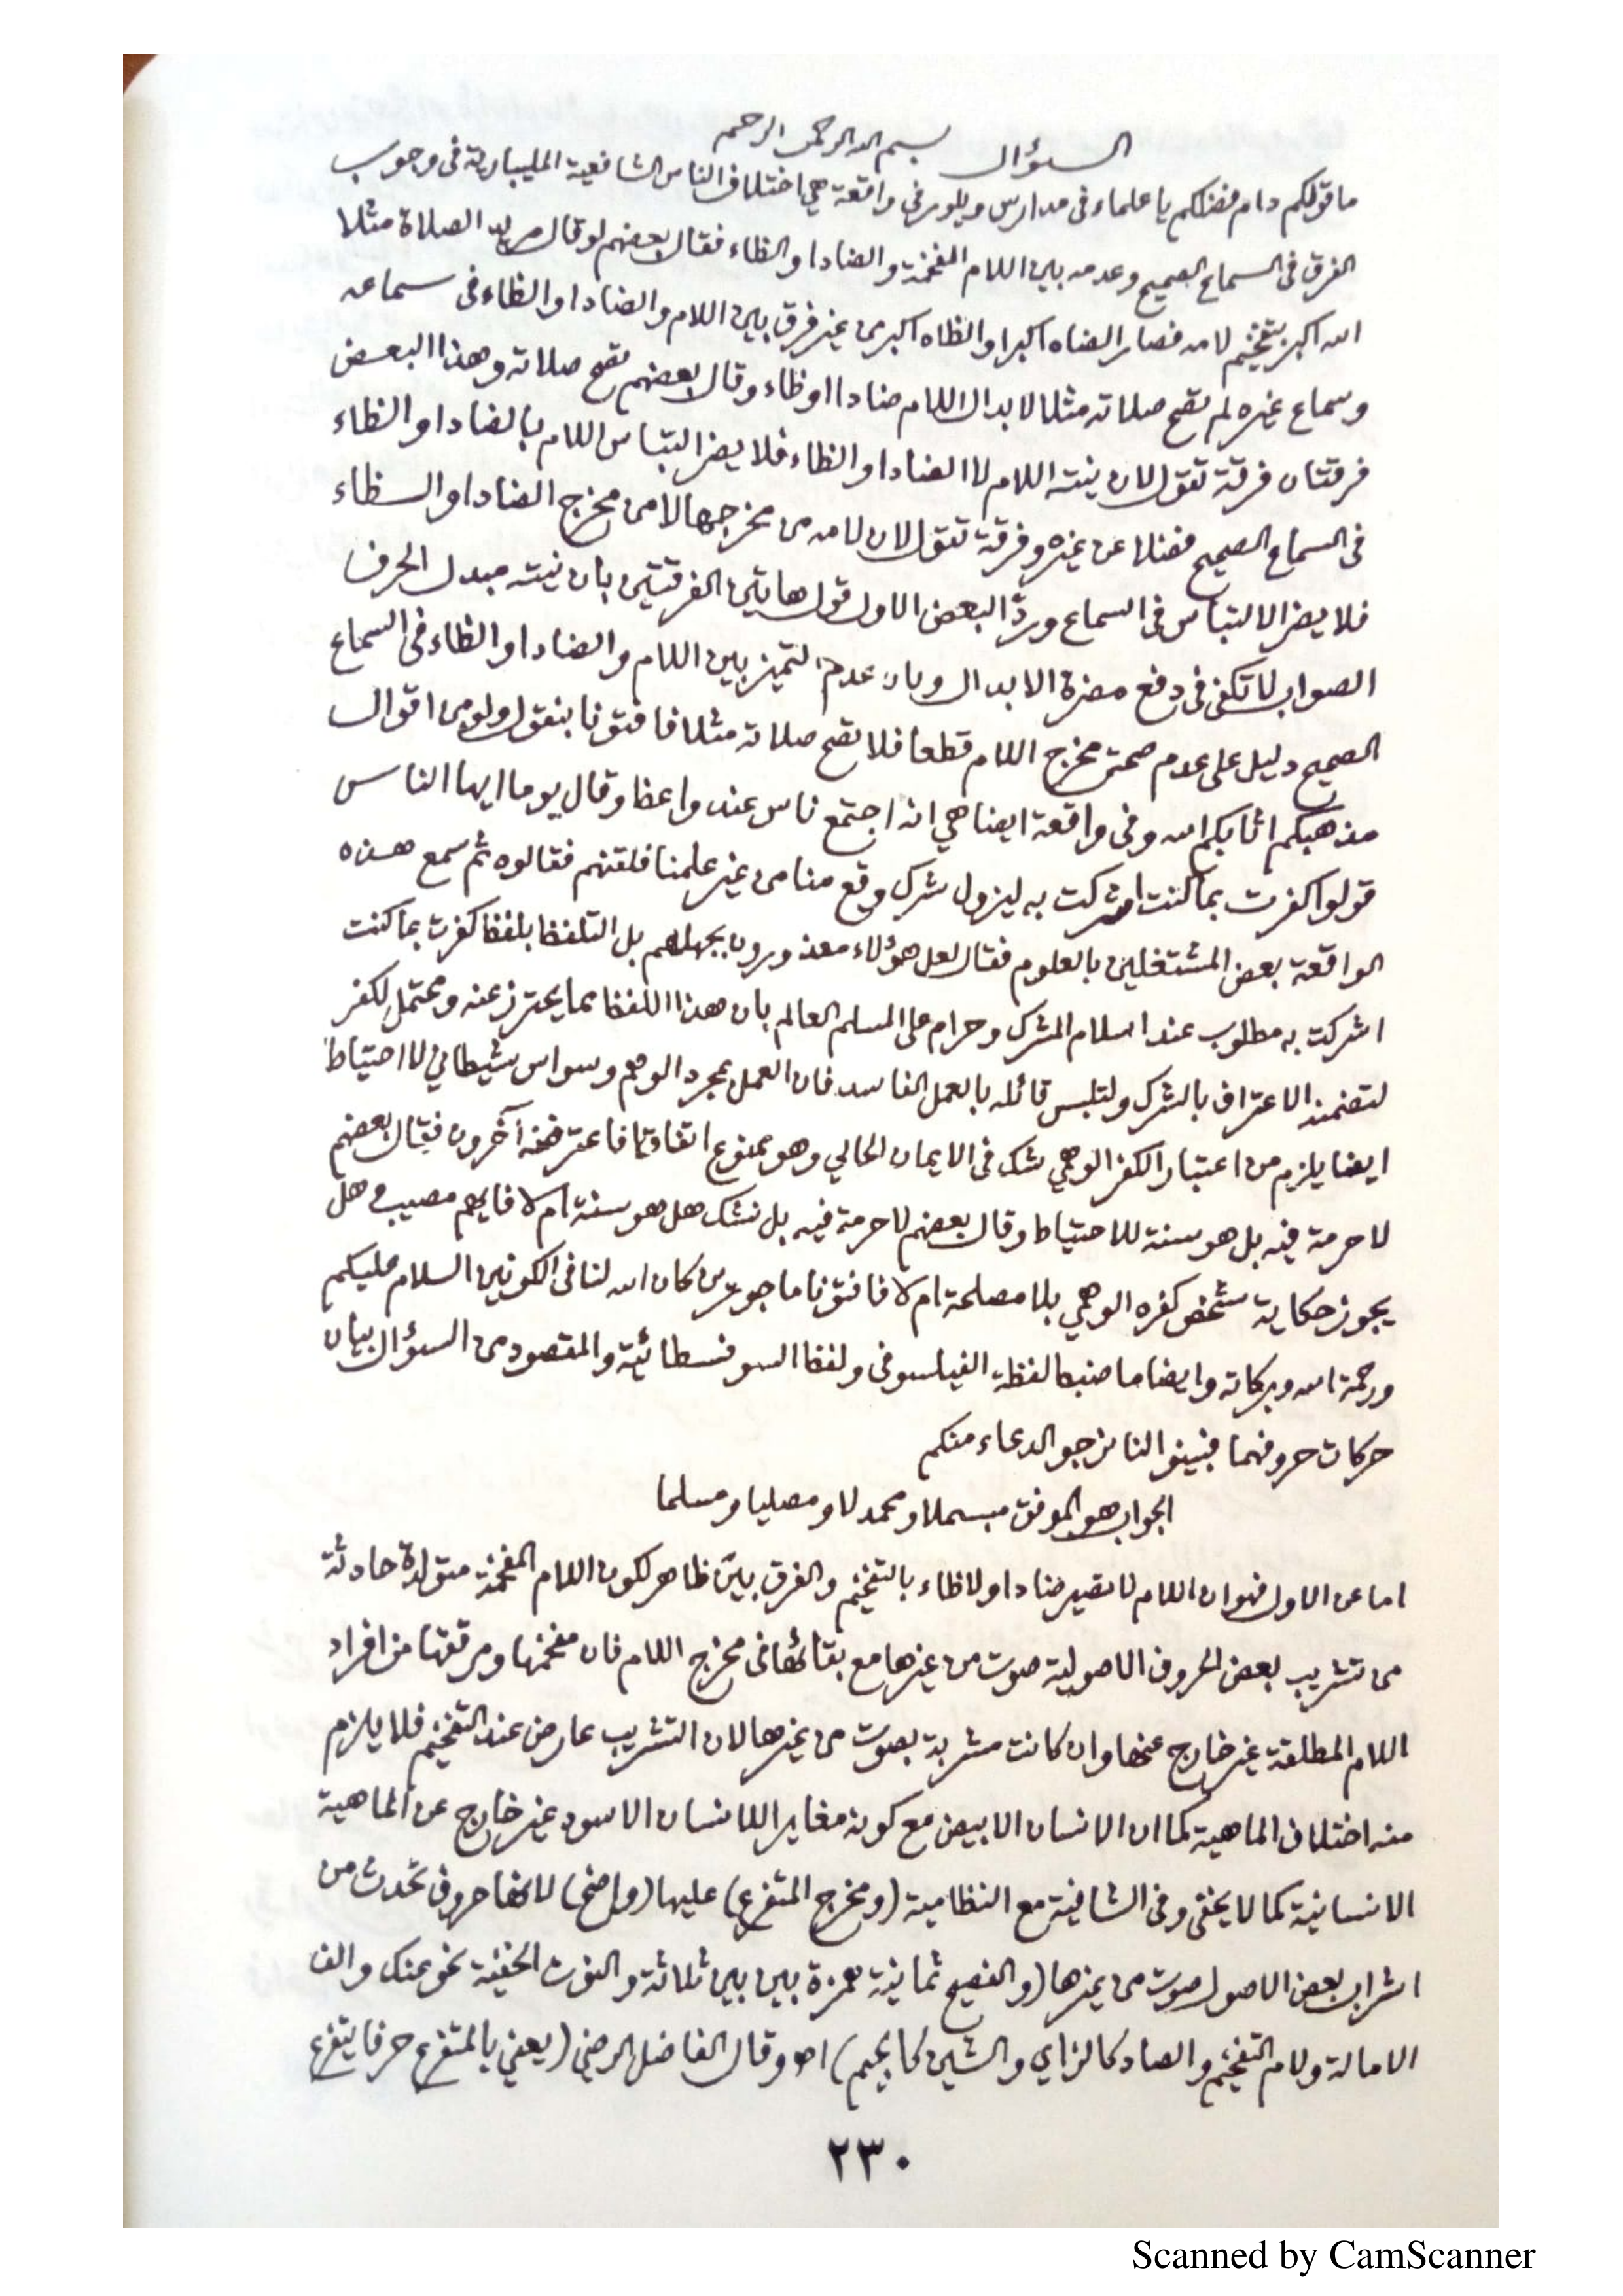 السؤال بسم الله الرحمن الرحيم
ما قولكم دام فضلكم يا علماء فى مدارس ويلور فى واقعة هي اختلاف الناس الشافعية المليبارية فى وجوب
الفرق فى السماع الصحيح وعدمه بين اللام المفخمة والضاد او الظاء فقال بعضهم لو قال مريد الصلاة مثلا
الله اكبر بتفخيم لامه فصار الضاه اكبر او الظاه اكبر من غير فرق بين اللام والضاد او الظاء فى سماعه
وسماع غيره لم تصح صلاته مثلا لابدال اللام ضادا او ظاء وقال بعضهم تصح صلاته وهذا البعض
فرقتان فرقة تقول لان نيته اللام لا الضاد او الظاء فلا يضر التباس اللام بالضاد او الظاء
فى السماع الصحيح فضلا عن غيره وفرقة تقول لان لامه من مخرجها لا من مخرج الضاد او الظاء
فلا يضر الالتباس فى السماع وردّ البعض الاول قول هاتين الفرقتين بان نيته مبدل الحرف
الصواب لا تكفى فى دفع مضرة الابدال وبان عدم التميز بين اللام والضاد او الظاء فى السماع
الصحيح دليل على عدم صحة مخرج اللام قطعا فلا تصح صلاته مثلا فافتونا بنقول ولو من اقوال
مذهبكم اثابكم الله وفى واقعة ايضا هي انه اجتمع ناس عند واعظ وقال يوما ايها الناس
قولوا كفرت بما كنت اشركت به ليزول شرك وقع منا من غير علمنا فلقنهم فقالوه ثم سمع هذه
الواقعة بعض المشتغلين بالعلوم فقال لعل هؤلاء معذورون بجهلهم بل التلفظ بلفظ كفرت بما كنت
اشركت به مطلوب عند اسلام المشرك وحرام على المسلم العالم بان هذا اللفظ مما يحترز عنه ومحتمل لكفر
لتضمنه الاعتراف بالشرك ولتلبس قائله بالعمل الفاسد فان العمل بمجرد الوهم وسواس شيطاني لا احتياط
ايضا يلزم من اعتبار الكفر الوهمي شك فى الايمان الحالي وهو ممنوع اتفاقا فاعترضه آخرون فقال بعضهم
لا حرمة فيه بل هو سنة للاحتياط وقال بعضهم لا حرمة فيه بل نشك هل هو سنة ام لا فايهم مصيب وهل
يجوز حكاية شخص كفره الوهمي بلا مصلحة ام لا فافتونا ماجورين كان الله لنا فى الكونين السلام عليكم
ورحمة الله وبركاته وايضا ما ضبط لفظة الفيلسوفى ولفظ السوفسطائية والمقصود من السؤال بيان
حركات حروفهما فبينوا لنا نرجو الدعاء منكم
الجواب هو الموفق مبسملا ومحمدلا ومصليا ومسلما
اما عن الاول فهو ان اللام لا تصير ضادا ولا ظاء بالتفخيم والفرق بيّن ظاهر لكون اللام المفخمة متولدة حادثة
من تشريب بعض الحروف الاصولية صوت من غيرها مع بقائها فى مخرج اللام فان مفخمها ومرققها من افراد
اللام المطلقة غير خارج عنها وان كانت مشربة بصوت من غيرها لان التشريب عارض عند التفخيم فلا يلزم
منه اختلاف الماهية كما ان الانسان الابيض مع كونه مغايرا للانسان الاسود غير خارج عن الماهية
الانسانية كما لا يخفى وفى الشافية مع النظامية (ومخرج المتفرع) عليها (واضح) لانها حروف تحدث من
اشراب بعض الاصول صوت من غيرها (والفصيح ثمانية همزة بين بين ثلاثة والنون الخفية نحو عنك والف
الامالة ولام التفخيم والصاد كالزاي والشين كالجيم) اهـ وقال الفاضل الرضي (يعني بالمتفرع حرفا يتفرع
٢٣٠
Scanned by CamScanner